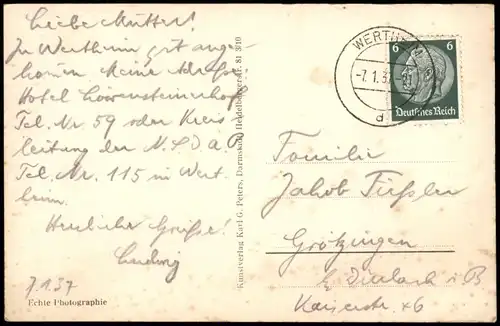 Liebe Mutter!
In Wertheim gut ange-
kommen Meine Adresse
Hotel Löwensteinerhof
Tel. Nr 59 oder Kreis
leitung der N.S.D.A.P
Tel. Nr. 115 in Wert
heim.
Herzliche Grüße!
Ludwig
7.1.37
Echte Photographie
Kunstverlag Karl G. Peters, Darmstadt, Heidelbergerstr. 81 3/10
WERTHEIM
-7.1.37
d
6 6
Deutsches Reich
Familie
Jakob
Grötzingen
b/ Durlach i B
Kaiserstr